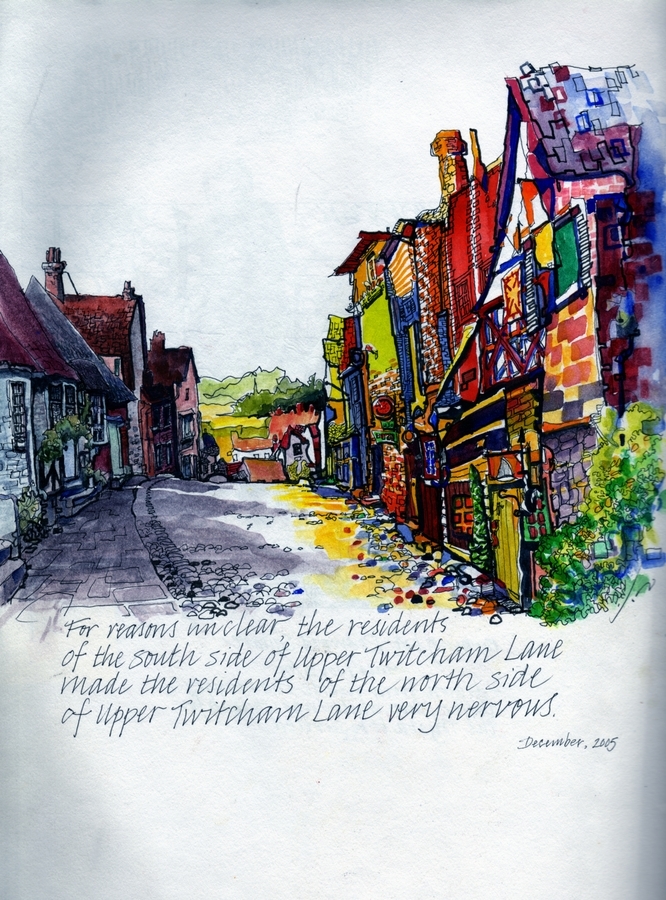 For reasons unclear, the residents
of the south side of Upper Twitcham Lane
made the residents of the north side
of Upper Twitcham Lane very nervous.
December, 2005